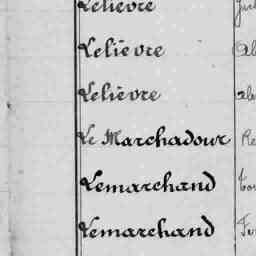 Lelièvre
Lelièvre
Lelièvre
Le Marchadour
Lemarchand
Lemarchand